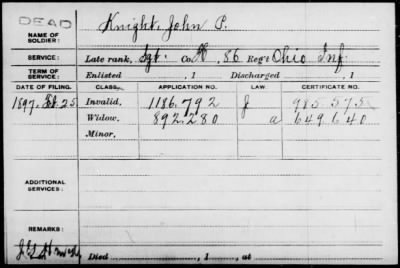 DEAD
Knight, John P.
NAME OF SOLDIER:
SERVICE: Late rank, Sgt. Co. H, 86 Reg't Ohio Inf.
TERM OF SERVICE: Enlisted , 1 Discharged , 1
DATE OF FILING. CLASS. APPLICATION NO. LAW. CERTIFICATE NO.
1897. 25 Invalid, 1186.792 J 985.575
Widow, 892.280 a 649.640
Minor,
ADDITIONAL SERVICES:
REMARKS:
Died , 1 , at